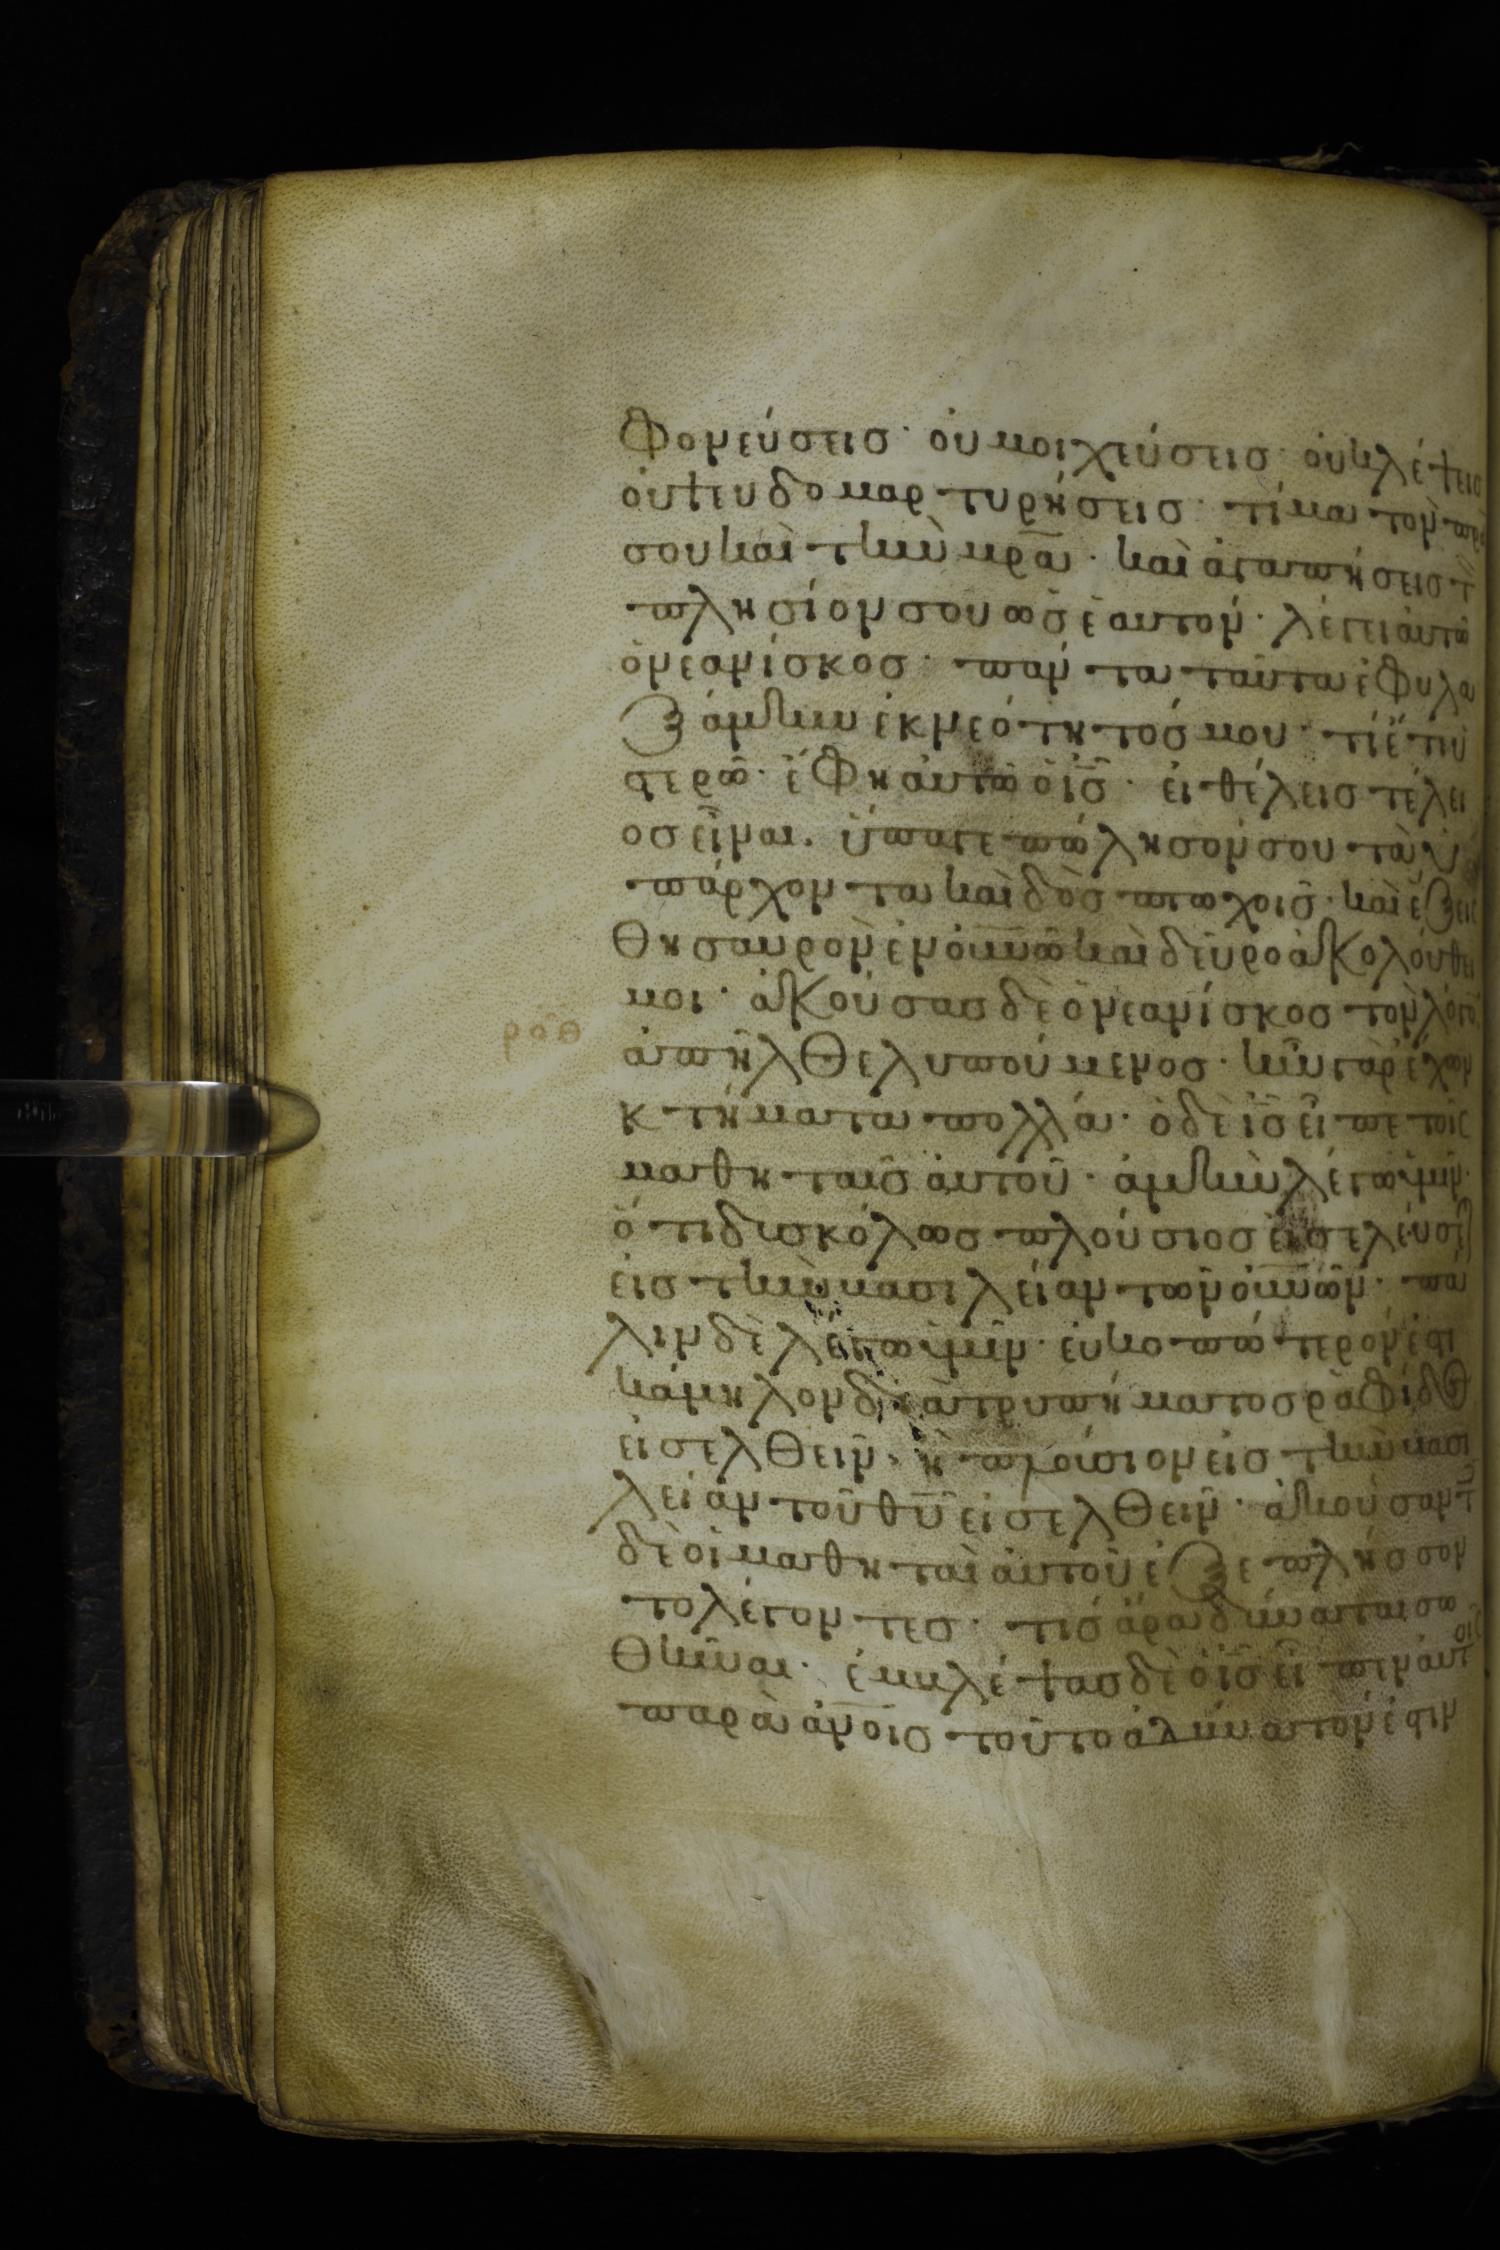 φονεύσεισ· οὐ μοιχεύσεισ· οὐ κλέψεισ
οὐ ψευδομαρτυρήσεισ· τίμα τὸν πρα
σου καὶ τὴν μρα· καὶ ἀγαπήσεισ τ
πλησίον σου ὡσ ἑαυτόν· λέγει αὐτῶ
ὁ νεανίσκοσ· πάντα ταῦτα ἐφυλα
ξάμην ἐκ νεότητόσ μου· τί ἔτι ὑ
στερῶ· ἔφη αὐτῶ ὁ ισ· εἰ θέλεισ τέλει
οσ εἶναι· ὕπαγε πώλησόν σου τὰ ὑ
πάρχοντα καὶ δὸσ πτωχοῖσ· καὶ ἕξεισ
θησαυρὸν ἐν οὐνῶ καὶ δεῦρο ἀκολούθει
μοι· ἀκούσασ δὲ ὁ νεανίσκοσ τὸν λόγον
ροθ
ἀπῆλθε λυπούμενοσ· ἦν γὰρ ἔχων
κτήματα πολλά· ὁ δὲ ισ εἶπε τοῖσ
μαθηταῖσ αὐτοῦ· ἀμὴν λέγω ὑμῖν·
ὅτι δυσκόλωσ πλούσιοσ εἰσελεύσεται
εἰσ τὴν βασιλείαν τῶν οὐνῶν· πά
λιν δὲ λέγω ὑμῖν· εὐκοπώτερόν ἐστι
κάμηλον διὰ τρυπήματοσ ραφίδοσ
εἰσελθεῖν· ἢ πλούσιον εἰσ τὴν βασι
λείαν τοῦ θυ εἰσελθεῖν· ἀκούσαντ
δὲ οἱ μαθηταὶ αὐτοῦ ἐξεπλήσσον
το λέγοντεσ· τίσ ἄρα δύναται σω
θῆναι· ἐμβλέψασ δὲ ὁ ισ εἶπεν αὐτοῖσ
παρὰ ἀνοισ τοῦτο ἀδύνατόν ἐστιν